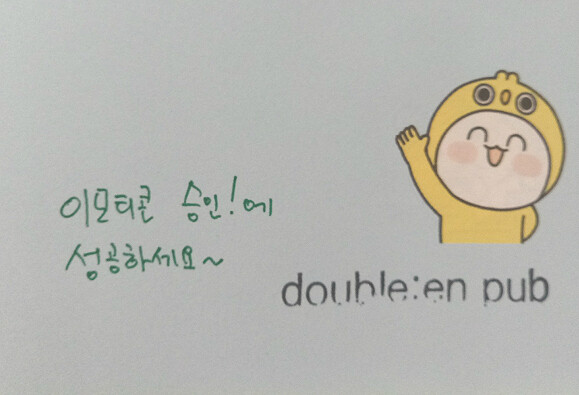 이모티콘 승인!에
성공하세요~
double:en pub